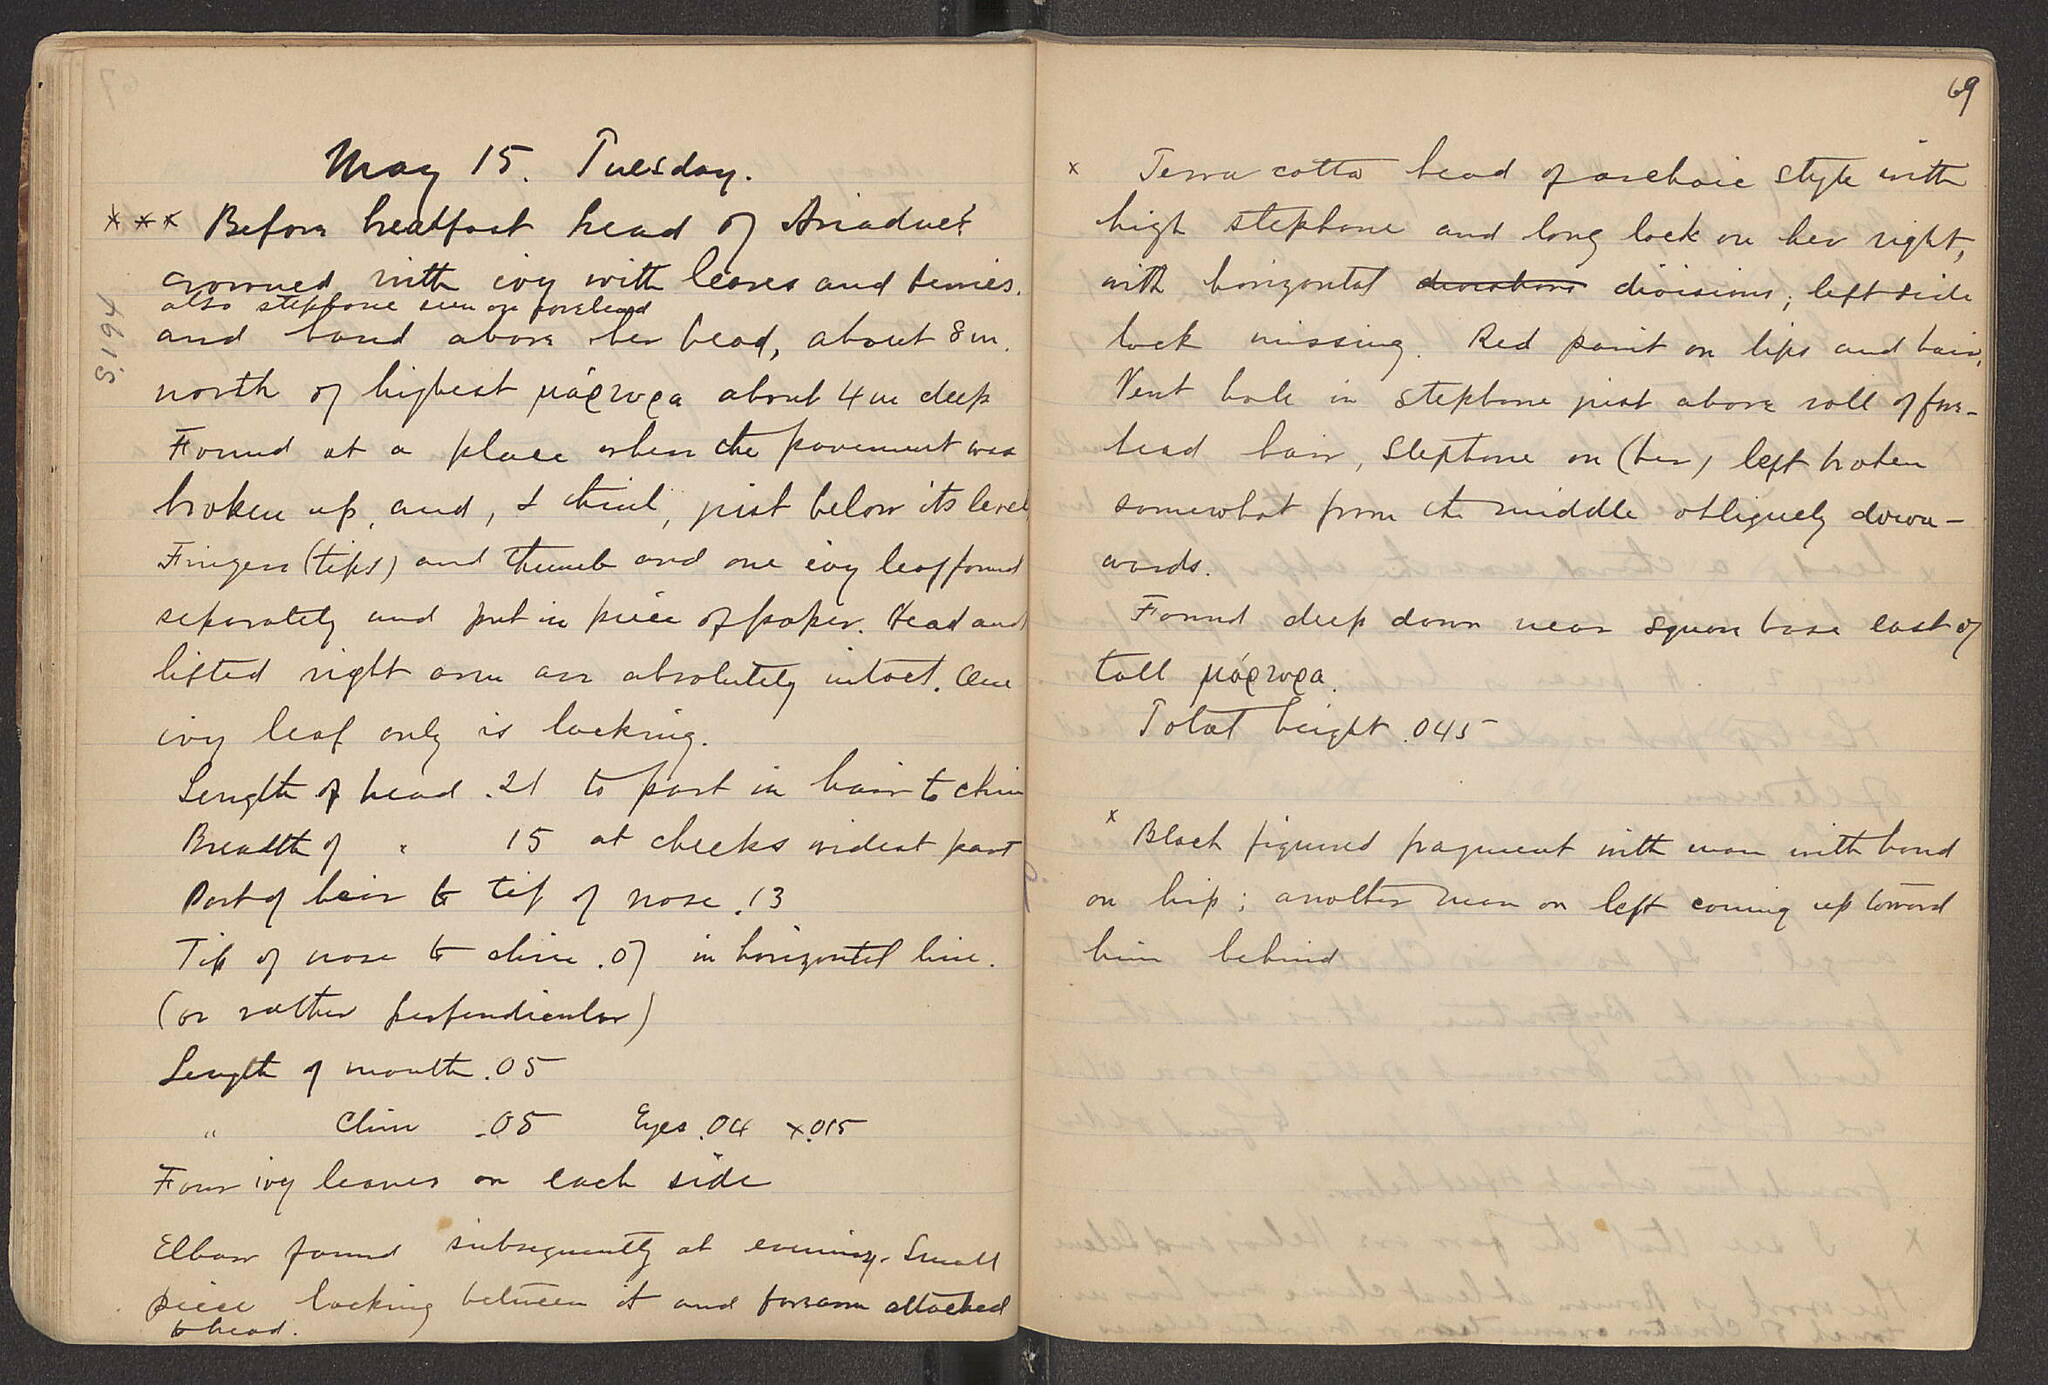 May 15. Tuesday.
*** Before breakfast head of Ariadne?
crowned with ivy with leaves and berries.
also stephane seen on forehead
and hand above her head, about 8 m.
north of highest μάρτυρα about 4 m deep
Found at a place where the pavement was
broken up, and, I think, just below its level
Fingers (tips) and thumb and one ivy leaf found
separately and put in piece of paper. Head and
lifted right arm are absolutely intact. One
ivy leaf only is lacking.
Length of head .21 to part in hair to chin
Breadth of " 15 at cheeks widest part
Part of hair to tip of nose .13
Tip of nose to chin .07 in horizontal line.
(or rather perpendicular)
Length of mouth .05
" chin .05 Eyes .04 x .015
Four ivy leaves on each side
Elbow found subsequently at evening. Small
piece lacking between it and forearm attached
to head.
S 194
69
x Terra cotta head of archaic style with
high stephane and long lock on her right,
with horizontal deviations divisions; left side
lock missing. Red paint on lips and hair.
Vent hole in stephane just above roll of fore-
head hair, Stephane on (her) left broken
somewhat from the middle obliquely down-
wards.
Found deep down near square base east of
tall μάρτυρα.
Total height .045
x Black figured fragment with man with hand
on hip; another man on left coming up toward
him behind